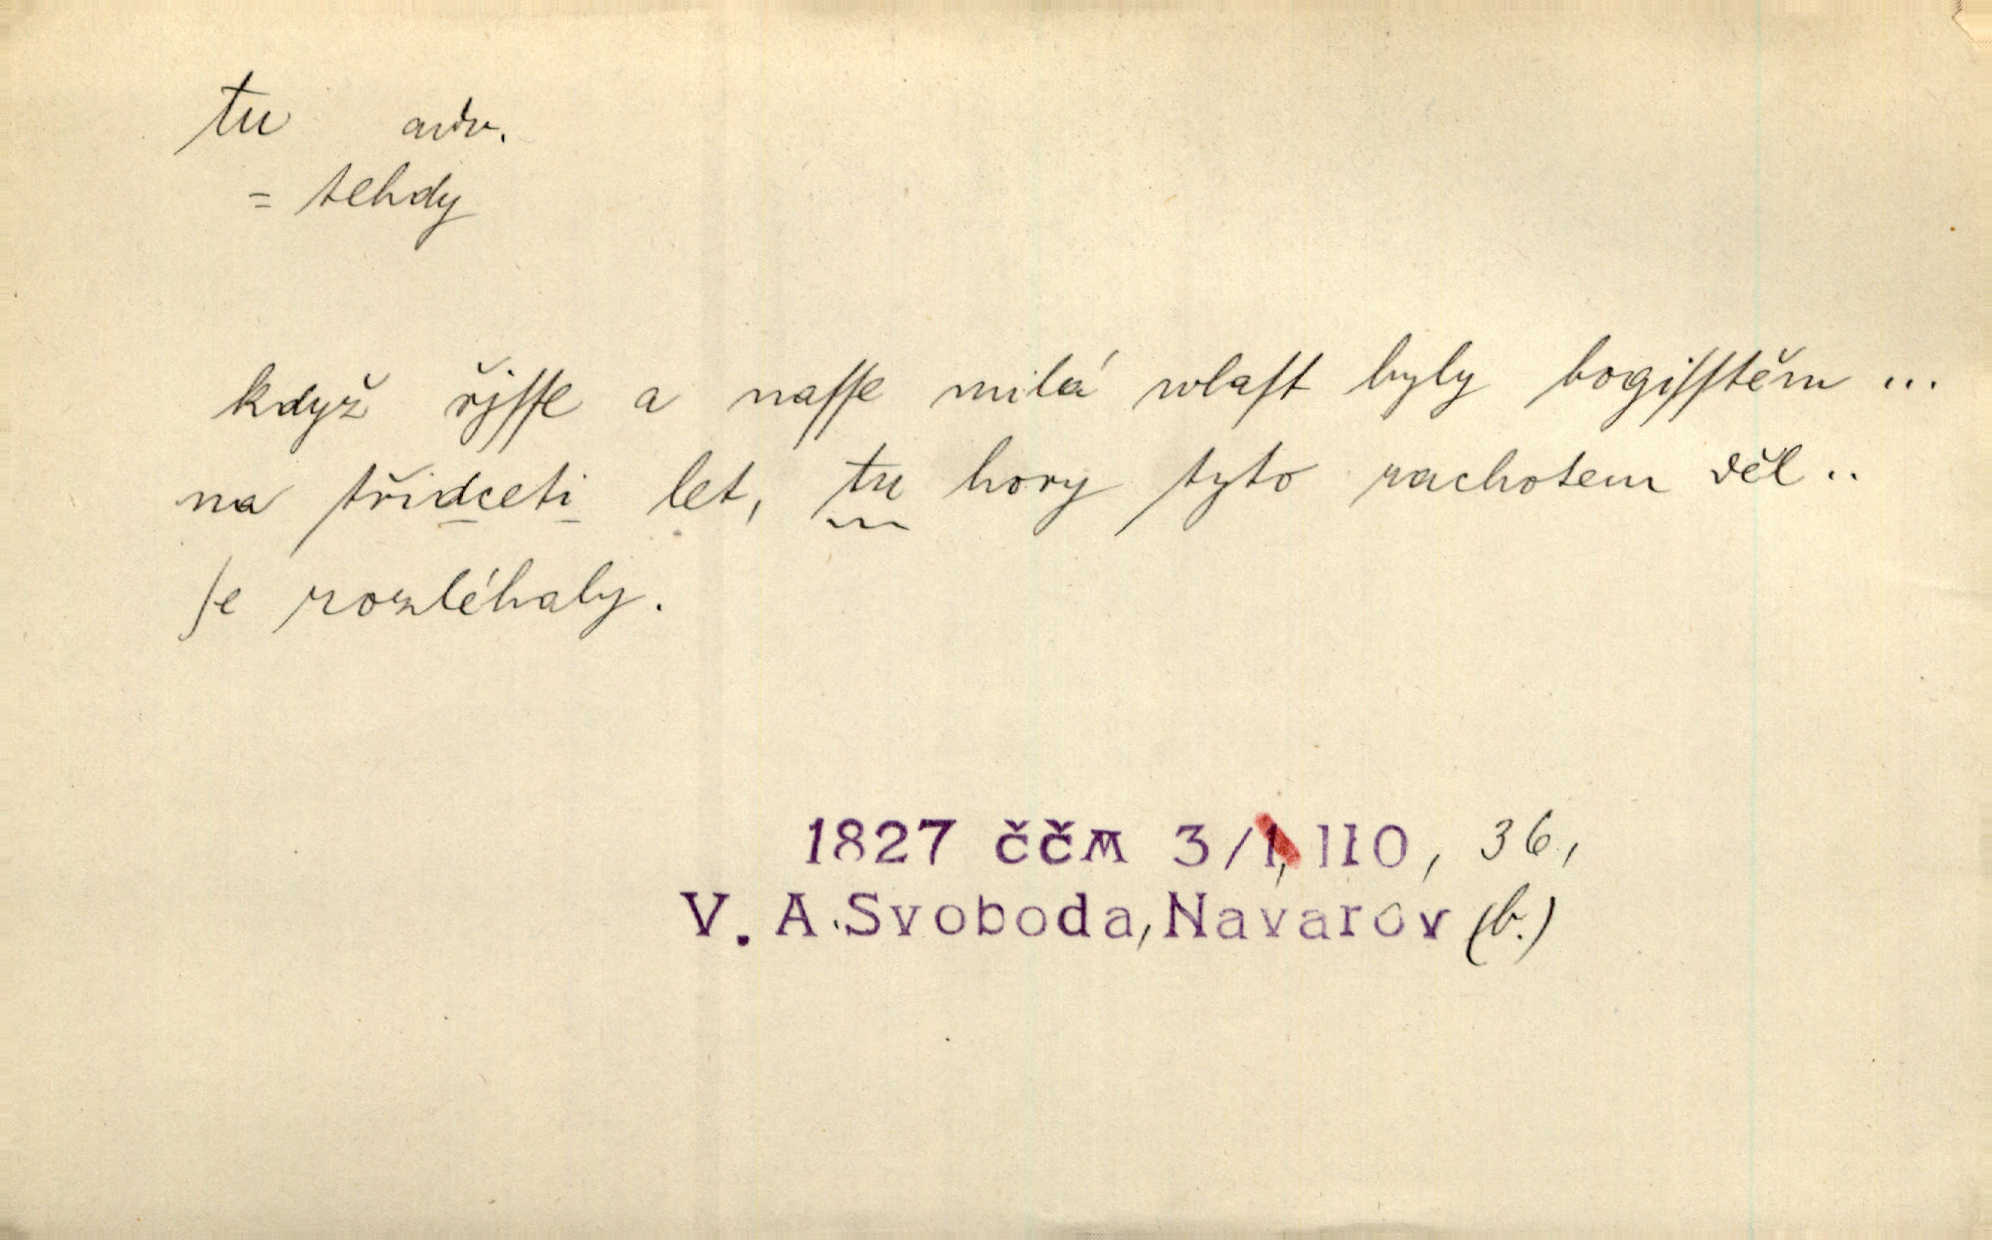 tu adv.
= tehdy
když řjſſe a naſſe milá wlaſt byly bogiſſtěm ...
na třidceti let, tu hory tyto rachotem děl ..
ſe rozléhaly.
1827 ččm 3/1, 110, 36,
V. A. Svoboda, Navarov (b.)